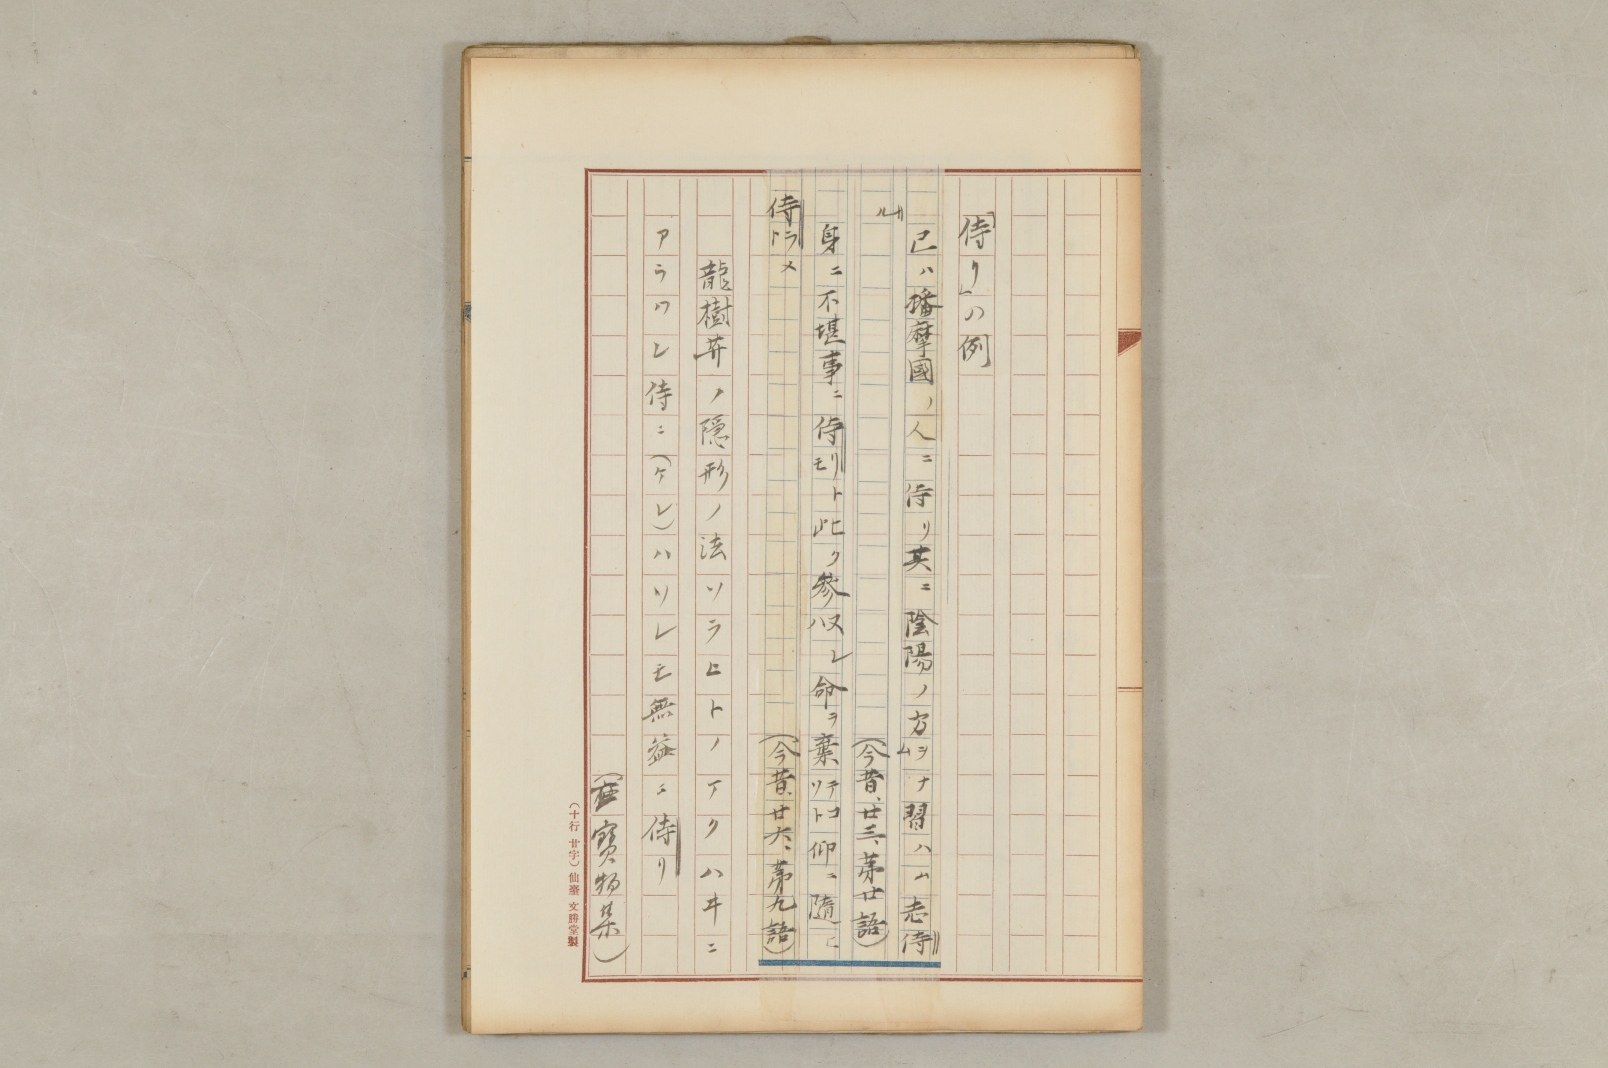 「侍り」の例
已ハ播摩國ノ人ニ侍リ其ニ陰陽ノ方ヲナムム習ハム志侍
ルサ
(今昔、廿三、第廿語)
身ニ不堪事ニ侍リトモ此ク参ヌレハ命ヲ棄テコソト仰ニ隨ヒ
侍ラメト
(今昔、廿六、第九語)
龍樹菩ノ隠形ノ法ソラヒトノアクハヰニ
アラワレ侍ニ(ケレ)ハソレモ無益ニ侍リ
寳物集)
(十行 廿字) 仙臺 文勝堂製